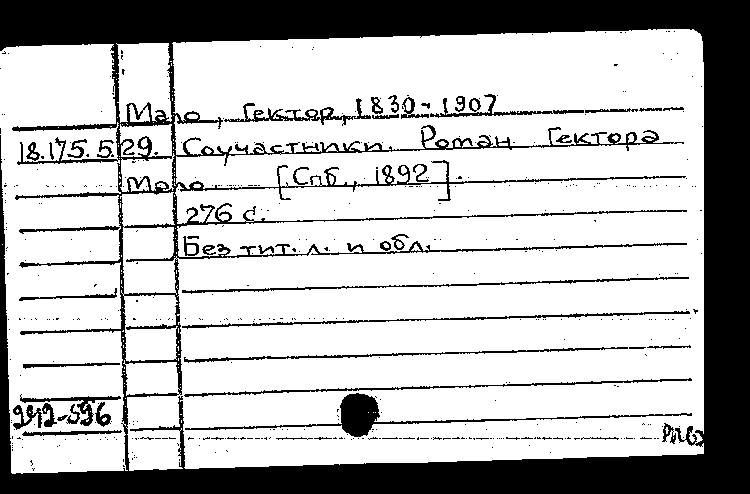 Мало, Гектор, 1830-1907
18.175.5.29. Соучастники. Роман Гектора
Мало. [Спб., 1892].
276 с.
Без тит. л. и обл.